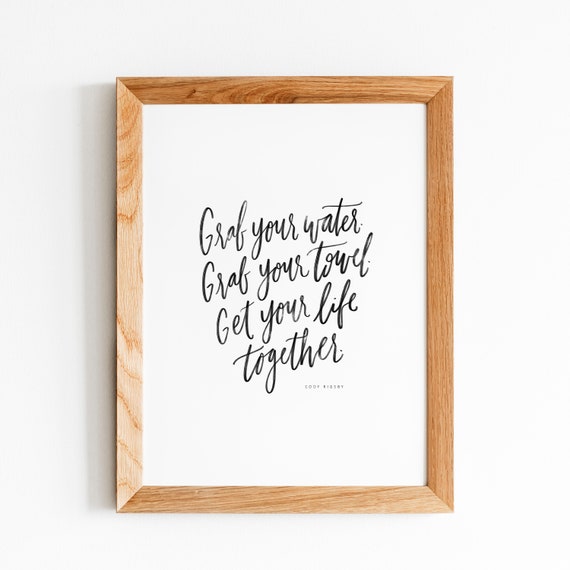 Grab your water.
Grab your towel.
Get your life
together.
CODY RIGSBY